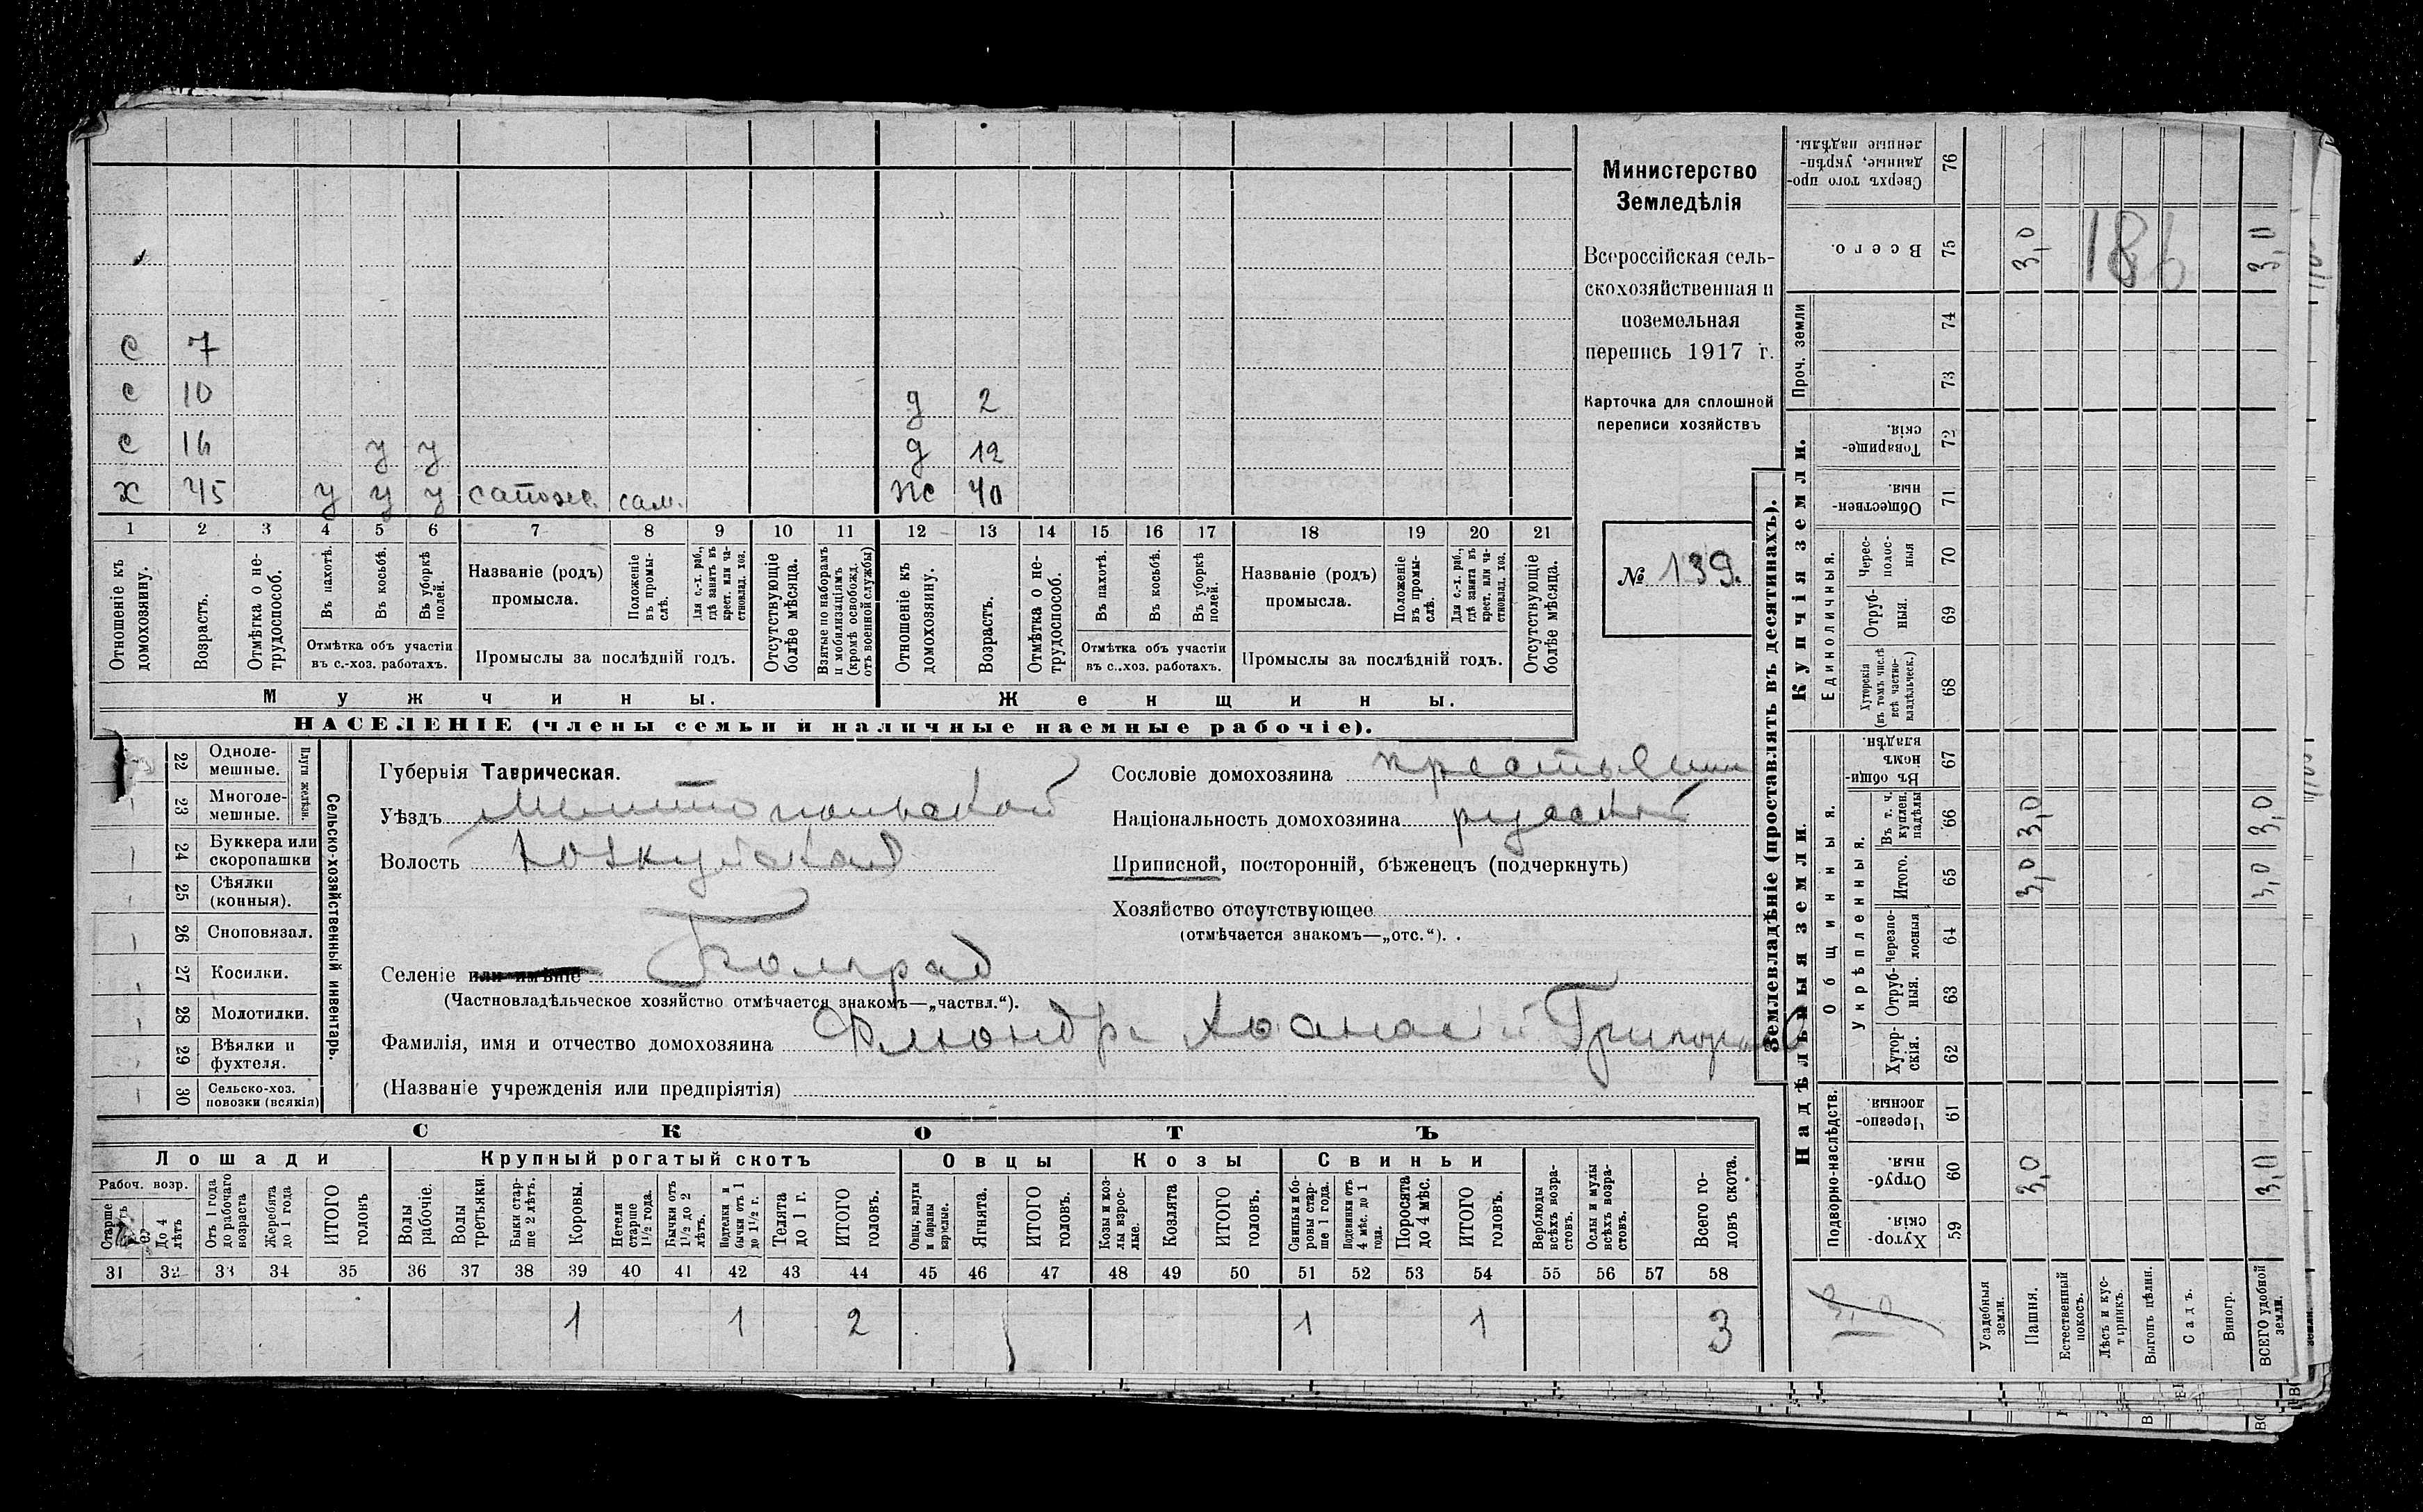 с 7
с 10 д 2
с 16 у у д 12
х 45 у у у сапож. сам. ж 40
1 2 3 4 5 6 7 8 9 10 11 12 13 14 15 16 17 18 19 20 21
Отношеніе къ домохозяину.
Возрастъ.
Отмѣтка о не-трудоспособ.
Въ пахотѣ.
Въ косьбѣ.
Въ уборкѣ полей.
Отмѣтка объ участіи
въ с.-хоз. работахъ.
Названіе (родъ)
промысла.
Положеніе въ промы-слѣ.
Для с.-х. раб., гдѣ занятъ въ крест. или ча-стновлад. хоз.
Промыслы за послѣдній годъ.
Отсутствующіе болѣе мѣсяца.
Взятые по наборамъ и мобилизаціямъ (кромѣ освобожд. отъ военной службы)
Отношеніе къ домохозяину.
Возрастъ.
Отмѣтка о не-трудоспособ.
Въ пахотѣ.
Въ косьбѣ.
Въ уборкѣ полей.
Отмѣтка объ участіи
въ с.-хоз. работахъ.
Названіе (родъ)
промысла.
Положеніе въ промы-слѣ.
Для с.-х. раб., гдѣ занята въ крест. или ча-стновлад. хоз.
Промыслы за послѣдній годъ.
Отсутствующіе болѣе мѣсяца.
Мужчины. Женщины.
НАСЕЛЕНІЕ (члены семьи и наличные наемные рабочіе).
Министерство
Земледѣлія
Всероссійская сель-
скохозяйственная и
поземельная
перепись 1917 г.
Карточка для сплошной
переписи хозяйствъ
№ 139.
Сельско-хозяйственный инвентарь.
Плуги желѣзн.
22 Одноле-мешные.
23 Многоле-мешные.
24 Буккера или скоропашки
25 Сѣялки (конныя).
26 Сноповязал.
27 Косилки.
28 Молотилки.
29 Вѣялки и фухтеля.
30 Сельско-хоз. повозки (всякія)
Губернія Таврическая.
Уѣздъ Мелитопольской
Волость
Селеніе или имѣніе Болград
(Частновладѣльческое хозяйство отмѣчается знакомъ—„частвл.“).
Фамилія, имя и отчество домохозяина
(Названіе учрежденія или предпріятія)
Сословіе домохозяина крестьянин
Національность домохозяина русский
Приписной, посторонній, бѣженецъ (подчеркнуть)
Хозяйство отсутствующее
(отмѣчается знакомъ—„отс.“).
СКОТЪ
Лошади Крупный рогатый скотъ Овцы Козы Свиньи
Рабоч. возр.
Старше
До 4 лѣтъ
Отъ 1 года до рабочаго возраста
Жеребята до 1 года
ИТОГО головъ
Волы рабочіе.
Волы третьяки.
Быки стар-ше 2 лѣтъ.
Коровы.
Нетели старше 1½ года.
Бычки отъ 1½ до 2 лѣтъ.
Подтелки и бычки отъ 1 до 1½ г.
Телята до 1 г.
ИТОГО головъ.
Овцы, валухи и бараны взрослые.
Ягнята.
ИТОГО головъ.
Козы и коз-лы взрос-лые.
Козлята
ИТОГО головъ.
Свиньи и бо-ровы стар-ше 1 года.
Подсвинки отъ 4 мѣс. до 1 года.
Поросята до 4 мѣс.
ИТОГО головъ.
Верблюды всѣхъ возра-стовъ.
Ослы и мулы всѣхъ возра-стовъ.
Всего го-ловъ скота.
31 32 33 34 35 36 37 38 39 40 41 42 43 44 45 46 47 48 49 50 51 52 53 54 55 56 57 58
1 1 2 1 1 3
Землевладѣніе (проставлять въ десятинахъ).
Надѣльныя земли.
Купчія земли.
Проч. земли
Подворно-наслѣдств.
Общинныя.
Укрѣпленныя.
Единоличныя.
Хутор-скія. 59
Отруб-ныя. 60
Черезпо-лосныя. 61
Хутор-скія. 62
Отруб-ныя. 63
Черезпо-лосныя 64
Итого. 65
Въ т. ч. куплен. надѣлы 66
Въ общин-номъ владѣн. 67
Хуторскія (въ томъ числѣ всѣ частно-владѣльческ.) 68
Отруб-ныя. 69
Черес-полос-ныя 70
Обществен-ныя. 71
Товарище-скія. 72
73
74
Всего. 75
Сверхъ того про-данные, укрѣп-ленные надѣлы. 76
Усадебныя земли.
Пашня. 3,0 3,0 3,0 3,0
Естественный покосъ.
Лѣсъ и кус-тарникъ.
Выгонъ цѣлин.
Садъ.
Виногр.
ВСЕГО удобной земли. 3,0 3,0 3,0 3,0
3,0
186